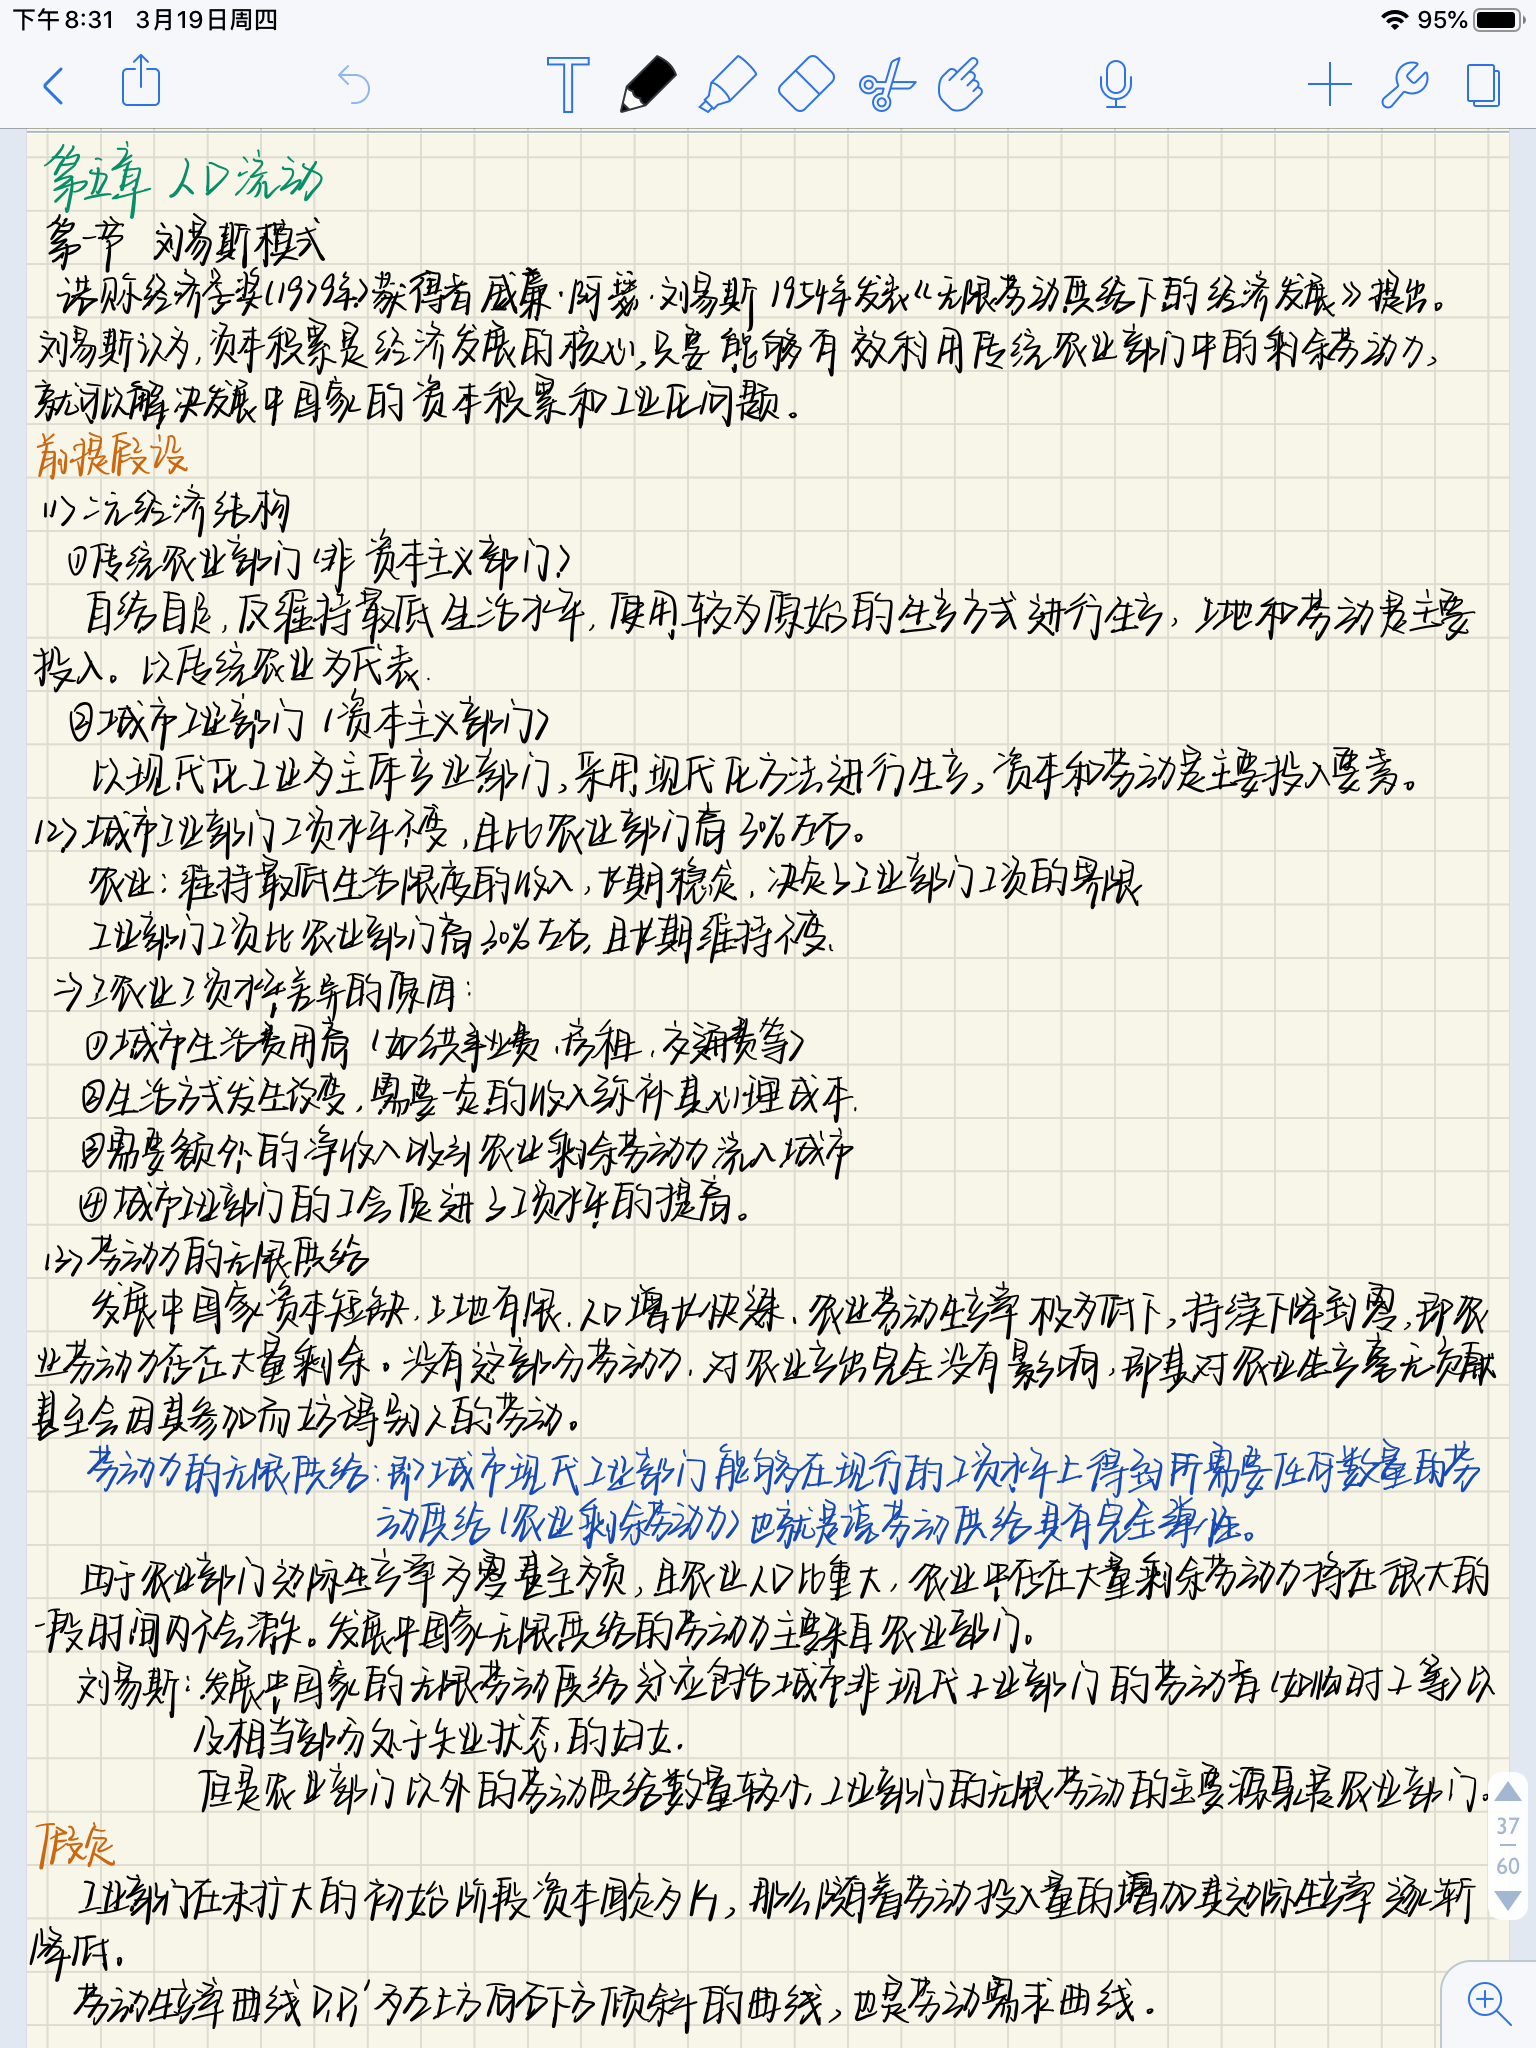 下午8:31 3月19日周四
95%
第五章 人口流动
第一节 刘易斯模式
诺贝尔经济学奖(1979年)获得者威廉·阿瑟·刘易斯1954年发表《无限劳动供给下的经济发展》提出。
刘易斯认为,资本积累是经济发展的核心,只要能够有效利用传统农业部门中的剩余劳动力,
就可以解决发展中国家的资本积累和工业化问题。
前提假设
(1)二元经济结构
①传统农业部门(非资本主义部门)
自给自足,仅维持最低生活水平,使用较为原始的生产方式进行生产,土地和劳动是主要
投入。以传统农业为代表.
②城市工业部门(资本主义部门)
以现代化工业为主体产业部门,采用现代化方法进行生产,资本和劳动是主要投入要素。
(2)城市工业部门工资水平不变,且比农业部门高30%左右。
农业:维持最低生活限度的收入,长期稳定,决定了工业部门工资的界限
工业部门工资比农业部门高30%左右,且长期维持不变.
⇒工农业工资水平差异的原因:
①城市生活费用高(如供暖费、房租、交通费等)
②生活方式发生改变,需要一定的收入弥补其心理成本.
③需要额外的净收入吸引农业剩余劳动力流入城市
④城市工业部门的工会促进了工资水平的提高。
(3)劳动力的无限供给
发展中国家资本短缺、土地有限、人口增长快速、农业劳动生产率极为低下,持续下降到零,即农
业劳动力存在大量剩余。没有这部分劳动力,对农业产出完全没有影响,即其对农业生产毫无贡献
甚至会因其参加而妨碍别人的劳动。
劳动力的无限供给:即城市现代工业部门能够在现行的工资水平上得到所需要任何数量的劳
动供给(农业剩余劳动力)也就是说劳动供给具有完全弹性。
由于农业部门边际生产率为零甚至为负,且农业人口比重大,农业中存在大量剩余劳动力将在很大的
一段时间内不会消失。发展中国家无限供给的劳动力主要来自农业部门。
刘易斯:发展中国家的无限劳动供给还应包括城市非现代工业部门的劳动者(如临时工等)以
及相当部分处于失业状态的妇女.
但是农业部门以外的劳动供给数量较小,工业部门的无限劳动的主要源泉是农业部门。
假定
工业部门在未扩大的初始阶段资本固定为K₁,那么随着劳动投入量的增加其边际生产率逐渐
降低。
劳动生产率曲线D₁D₁'为左上方向右下方倾斜的曲线,也是劳动需求曲线。
37
60